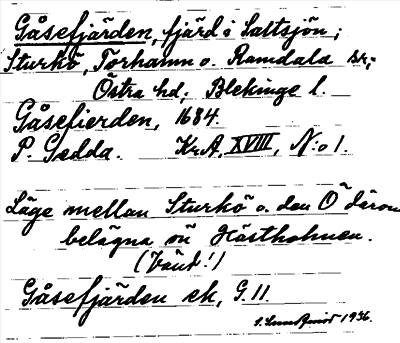 Gåsefjärden, fjärd i Saltsjön;
Sturkö, Torhamn o. Ramdala sr;
Östra hd; Blekinge l.
Gåsefierden, 1684.
P. Gedda. Kr.A, XVIII, N:o 1.
Läge mellan Sturkö o. den Ö därom
belägna ön Hästholmen.
(Vänd!)
Gåsefjärden ek, G. 11.
1936.